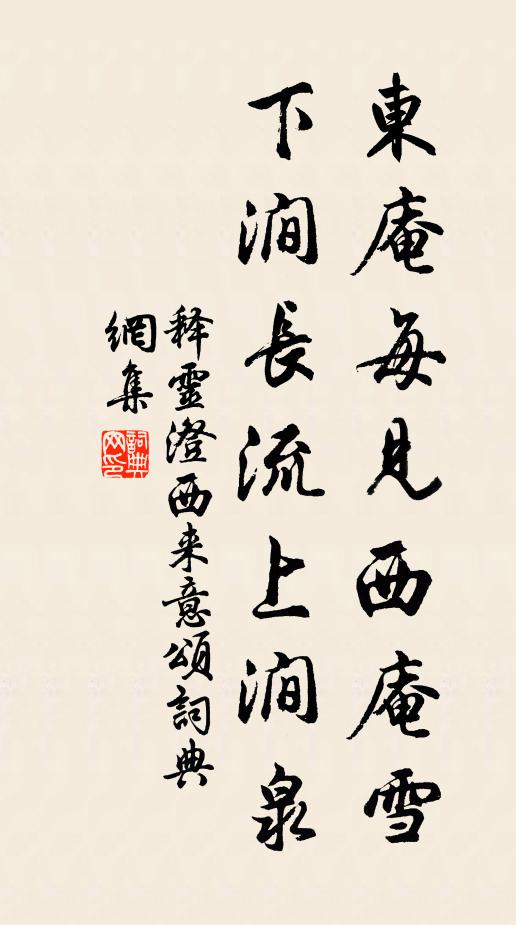 東庵每見西庵雪
下澗長流上澗泉
释靈澄西来意頌詞典
網集
詞典
网印